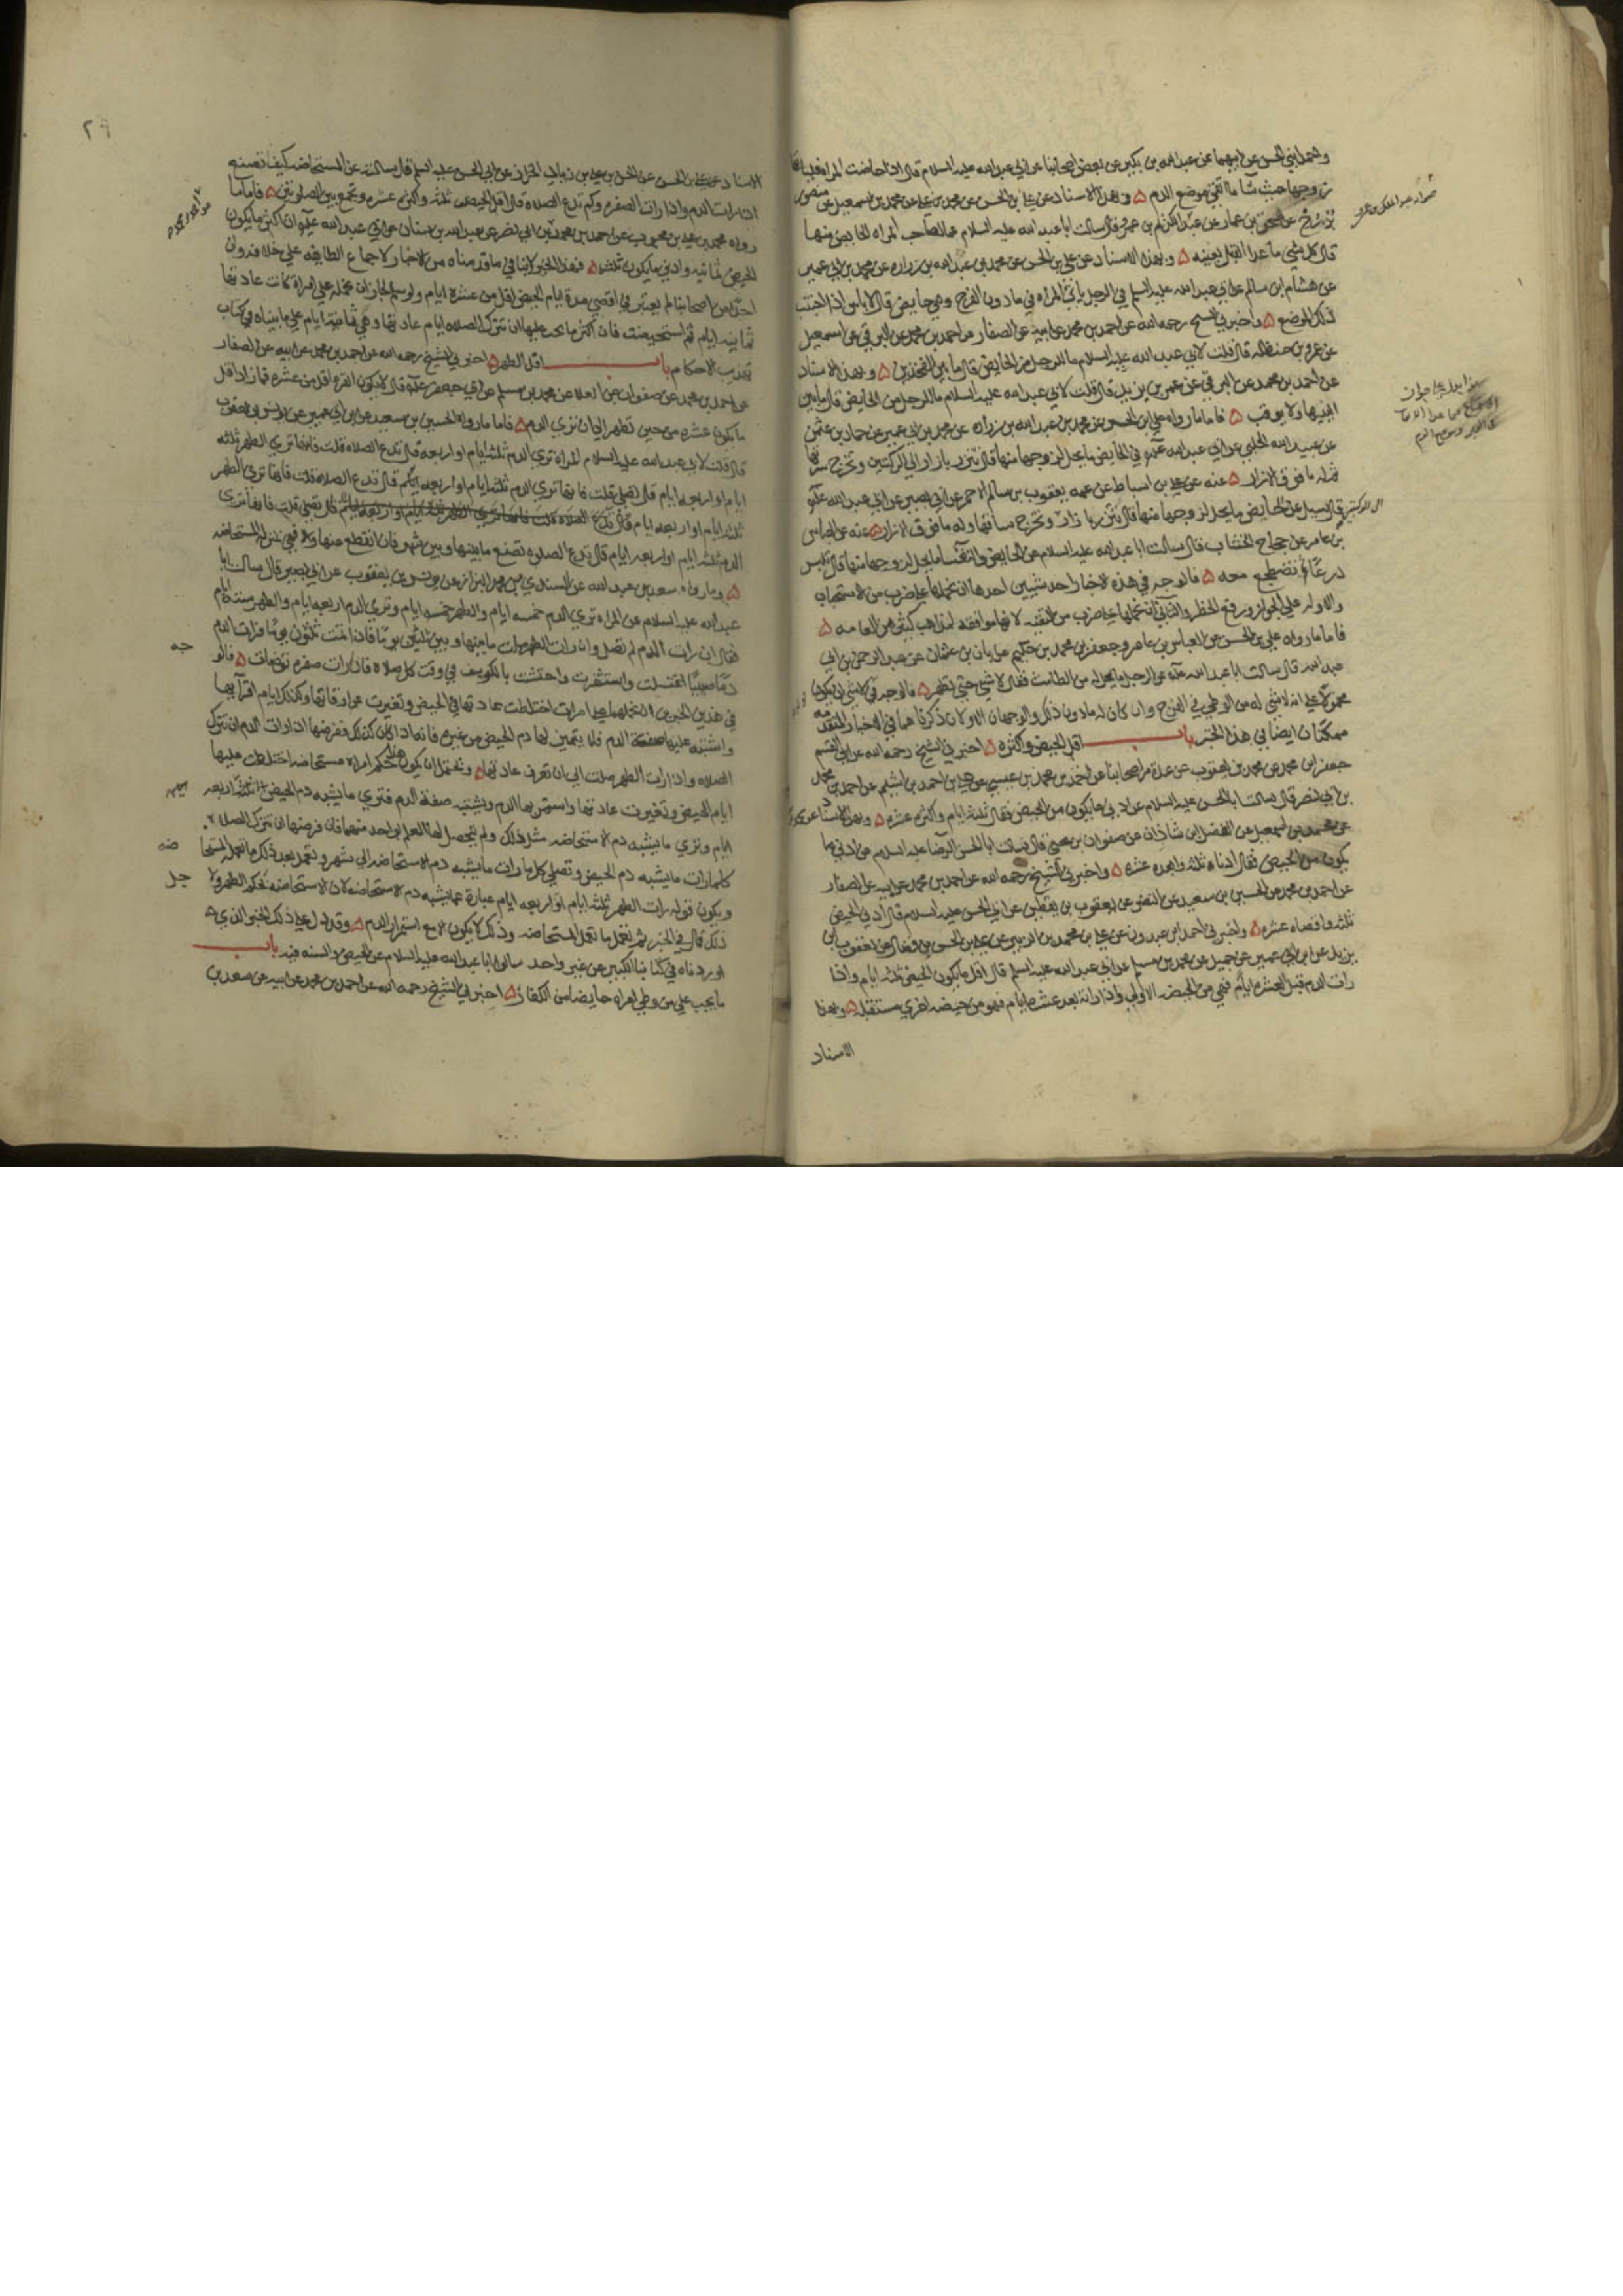 واحمد ابني الحسن عن ابيهما عن عبد الله بن بكير عن بعض اصحابنا عن ابي عبد الله عليه السلام قال اذا حاضت المراة فلياتها
زوجها حيث شا ما اتقي موضع الدم ۵ وبهذا الاسناد عن علي بن الحسن عن محمد بن علي عن محمد بن اسمعيل عن منصور
بن يونس عن اسحق بن عمار عن عبد الكريم بن عمرو قال سالت ابا عبد الله عليه السلام عما لصاحب المراه الحايض منها
قال كل شي ما عدا القبل بعينه ۵ وبهذا الاسناد عن علي بن الحسن عن محمد بن عبد الله بن زراره عن محمد بن ابي عمير
عن هشام ابن سالم عن ابي عبد الله عليه السلم في الرجل ياتي المراه في ما دون الفرج وهي حايض قال لا باس اذا اجتنب
ذلك الموضع ۵ واخبرني الشيخ رحمه الله عن احمد بن محمد عن ابيه عن الصفار عن احمد بن محمد عن البرقي عن اسمعيل
عن عمر بن حنظله قال قلت لابي عبد الله عليه السلام ما للرجل من الحايض قال ما بين الفخذين ۵ وبهذا الاسناد
عن احمد بن محمد عن البرقي عن عمر بن يزيد قال قلت لابي عبد الله عليه السلام ما للرجل من الحايض قال ما بين
اليتيها ولا يوقب ۵ فاما ما رواه علي ابن الحسن عن محمد بن عبد الله بن زراره عن محمد بن ابي عمير عن حماد بن عثمن
عن عبيد الله الحلبي عن ابي عبد الله علم في الحايض ما يحل لزوجها منها قال تتزر بازار الي الركبتين وتخرج سرتها
ثم له ما فوق الازار ۵ عنه عن علي بن اسباط عن عمه يعقوب بن سالم الاحمر عن ابي بصير عن ابي عبد الله علم
قال سيل عن الحايض ما يحل لزوجها منها قال تتزر بازار وتخرج ساقها وله ما فوق الازار ۵ عنه عن العباس
بن عامر عن حجاج الخشاب قال سالت ابا عبد الله عليه السلام عن الحايض والنفسا ما يحل لزوجها منها قال تلبس
درعا ثم تضطجع معه ۵ فالوجه في هذه الاخبار احد شيين احدها ان نحملها علي ضرب من الاستحباب
والاوله علي الجواز ورفع الحظر والثاني ان نحملها علي ضرب من التقيه لانها موافقه لمذاهب كثير من العامه ۵
فاما ما رواه علي بن الحسن عن العباس بن عامر وجعفر بن محمد بن حكيم عن ابان بن عثمان عن عبد الرحمن بن ابي
عبد الله قال سالت ابا عبد الله علم عن الرجل ما يحل له من الطامث فقال لا شي حتي تطهر ۵ فالوجه في لا شي ان يكون
محمولا علي انه لا شي له من الوطي في الفرج وان كان له ما دون ذلك والوجهان الاولان ذكرناهما في الاخبار المتقدمه
ممكنان ايضا في هذا الخبر باب اقل الحيض واكثره ۵ اخبرني الشيخ رحمه الله عن ابي القسم
جعفر ابن محمد عن محمد بن يعقوب عن عدة من اصحابنا عن احمد بن محمد بن عيسي عن علي بن احمد بن اشيم عن احمد بن محمد
بن ابي نصر قال سالت ابا الحسن عليه السلام عن ادني ما يكون من الحيض فقال ثلثة ايام واكثره عشره ۵ وبهذا الاسناد عن محمد
عن محمد بن اسمعيل عن الفضل ابن شاذان عن صفوان بن يحيي قال سالت ابا الحسن الرضا عليه السلام عن ادني ما
يكون من الحيض فقال ادناه ثلثه وابعده عشره ۵ واخبرني الشيخ رحمه الله عن احمد بن محمد عن ابيه عن الصفار
عن احمد بن محمد عن الحسين بن سعيد عن النضر عن يعقوب بن يقطين عن ابي الحسن عليه السلام قال ادني الحيض
ثلثه واقصاه عشره ۵ واخبرني احمد ابن عبدون عن علي بن محمد بن الزبير عن علي بن الحسن بن فضال عن يعقوب ابن
يزيد عن ابن ابي عمير عن جميل عن محمد بن مسلم عن ابي عبد الله عليه السلم قال اقل ما يكون الحيض ثلثه ايام واذا
رات الدم قبل العشره ايام فهي من الحيضه الاولي واذا راته بعد عشره ايام فهو من حيضه اخري مستقبله ۵ وبهذا
الاسناد
الي الركبتين
۲۶
الاسناد عن علي بن الحسن عن الحسن بن علي بن زياد الخزاز عن ابي الحسن عليه السلم قال سالته عن المستحاضه كيف تصنع
اذا رات الدم واذا رات الصفره وكم تدع الصلاه قال اقل الحيض ثلثه واكثره عشره وتجمع بين الصلوتين ۵ فاما ما
رواه محمد بن علي بن محبوب عن احمد بن محمد بن ابي نصر عن عبد الله بن سنان عن ابي عبد الله علم ان اكثر ما يكون
الحيض ثمانيه وادني ما يكون ثلثه ۵ فهذا الخبر لا ينافي ما قدمناه من الاخبار لاجماع الطايفه علي خلافه وان
احدا من اصحابنا لم يعتبر في اقصي مدة ايام الحيض اقل من عشره ايام ولو سلم لجاز ان نحمله علي امراة كانت عادتها
ثمانيه ايام ثم استحيضت فان اكثر ما يجب عليها ان تترك الصلاه ايام عادتها وهي ثمانية ايام علي ما بيناه في كتاب
تهذيب الاحكام باب اقل الطهر ۵ اخبرني الشيخ رحمه الله عن احمد بن محمد عن ابيه عن الصفار
عن احمد بن محمد عن صفوان عن العلا عن محمد بن مسلم عن ابي جعفر علم قال لا يكون القرو اقل من عشره فما زاد اقل
ما يكون عشره من حين تطهر الي ان تري الدم ۵ فاما ما رواه الحسين بن سعيد عن ابن ابي عمير عن يونس بن يعقوب
قال قلت لابي عبد الله عليه السلام المراة تري الدم ثلثه ايام او اربعه قال تدع الصلاه قلت فانها تري الطهر ثلثه
ايام او اربعه ايام قال تصلي قلت فانها تري الدم ثلثه ايام او اربعه ايام قال تدع الصلاه قلت فانها تري الطهر
ثلثه ايام او اربعه ايام قال تصلي قلت فانها تري
الدم ثلثه ايام او اربعه ايام قال تدع الصلوه تصنع ما بينها وبين شهر فان انقطع عنها والا فهي بمنزله المستحاضه
۵ وما رواه سعد بن عبد الله عن السندي بن محمد البزاز عن يونس بن يعقوب عن ابي بصير قال سالت ابا
عبد الله عليه السلام عن المراه تري الدم خمسه ايام والطهر خمسه ايام وتري الدم اربعه ايام والطهر سته ايام
فقال ان رات الدم لم تصل وان رات الطهر صلت ما بينها وبين ثلثين يوما فاذا تمت ثلثون يوما فرات الدم
دما صبيبا اغتسلت واستثفرت واحتشت بالكرسف في وقت كل صلاه فاذا رات صفره توضات ۵ فالوجه
في هذين الخبرين ان نحملهما علي امراة اختلطت عادتها في الحيض وتغيرت عن اوقاتها وكذلك ايام اقرايها
واشتبه عليها صفة الدم فلا يتميز لها دم الحيض من غيره فانه اذا كان كذلك ففرضها اذا رات الدم ان تترك
الصلاه واذا رات الطهر صلت الي ان تعرف عادتها ۵ ويحتمل ان يكون هذا حكم امراه مستحاضه اختلطت عليها
ايام الحيض وتغيرت عادتها واستمر بها الدم ويشتبه صفة الدم فتري ما يشبه دم الحيض ثلثه او اربعه
ايام وتري ما يشبه دم الاستحاضه مثل ذلك ولم يتحصل لها العلم بواحد منهما فان فرضها ان تترك الصلاه
كلما رات ما يشبه دم الحيض وتصلي كلما رات ما يشبه دم الاستحاضه الي شهر وتعمل بعد ذلك ما تعمله المستحاضه
ويكون قوله رات الطهر ثلثه ايام او اربعه ايام عبارة عما يشبه دم الاستحاضه لان الاستحاضه بحكم الطهر ولاجل
ذلك قال في الخبر ثم تعمل ما تعمل المستحاضه وذلك لا يكون الا مع استمرار الدم ۵ وقد دل علي ذلك الخبر الذي
اوردناه في كتابنا الكبير عن غير واحد سالوا ابا عبد الله عليه السلام عن الحيض والسنه فيه باب
ما يجب علي من وطي امراة حايضا من الكفاره ۵ اخبرني الشيخ رحمه الله عن احمد بن محمد عن ابيه عن سعد بن